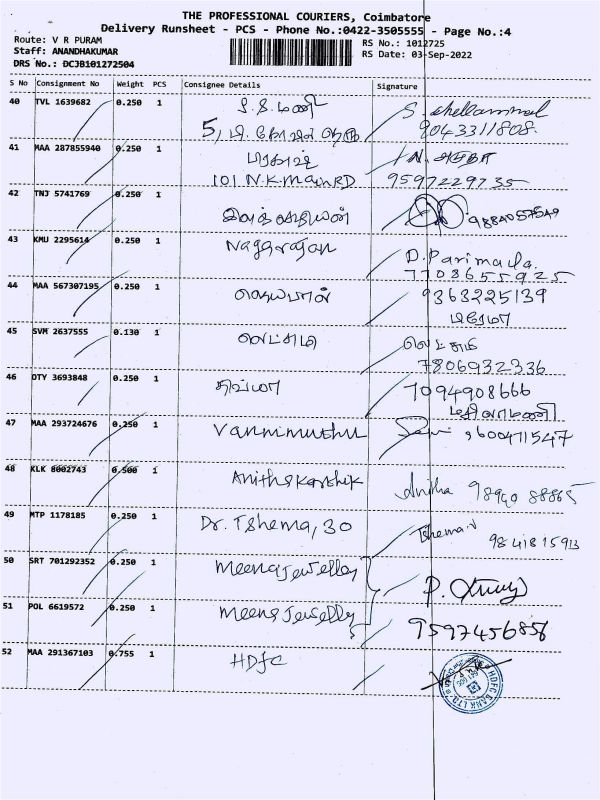 THE PROFESSIONAL COURIERS, Coimbatore
Delivery Runsheet - PCS - Phone No.:0422-3505555 - Page No.:4
Route: V R PURAM
Staff: ANANDHAKUMAR
DRS No.: DCJB101272504
RS No.: 1012725
RS Date: 03-Sep-2022
S No Consignment No Weight PCS Consignee Details Signature
40 TVL 1639682 0.250 1 S. Chellammal
5, 9043311808.
41 MAA 287855940 0.250 1
101 N.K.Main RD 9597229735
42 TNJ 5741769 0.250 1 9884057549
43 KMU 2295614 0.250 1 Nagarajan D. Parimala.
7708655925
44 MAA 567307195 0.250 1 ஜெயபால் 9363225139
பிரேமா
45 SVM 2637555 0.130 1 லெட்சுமி லெட்சுமி
7806932336
46 OTY 3693848 0.250 1 7094908666
47 MAA 293724676 0.250 1 Vannimuthu 9600471547
48 KLK 8002743 0.500 1 Anitha Karthik Anitha 98940 88865
49 MTP 1178185 0.250 1 Dr. T Shema, 30
9841815913
50 SRT 701292352 0.250 1 Meena Jewellery
51 POL 6619572 0.250 1 Meena Jewellery
9597456856
52 MAA 291367103 0.755 1 HDFC
HDFC BANK LTD